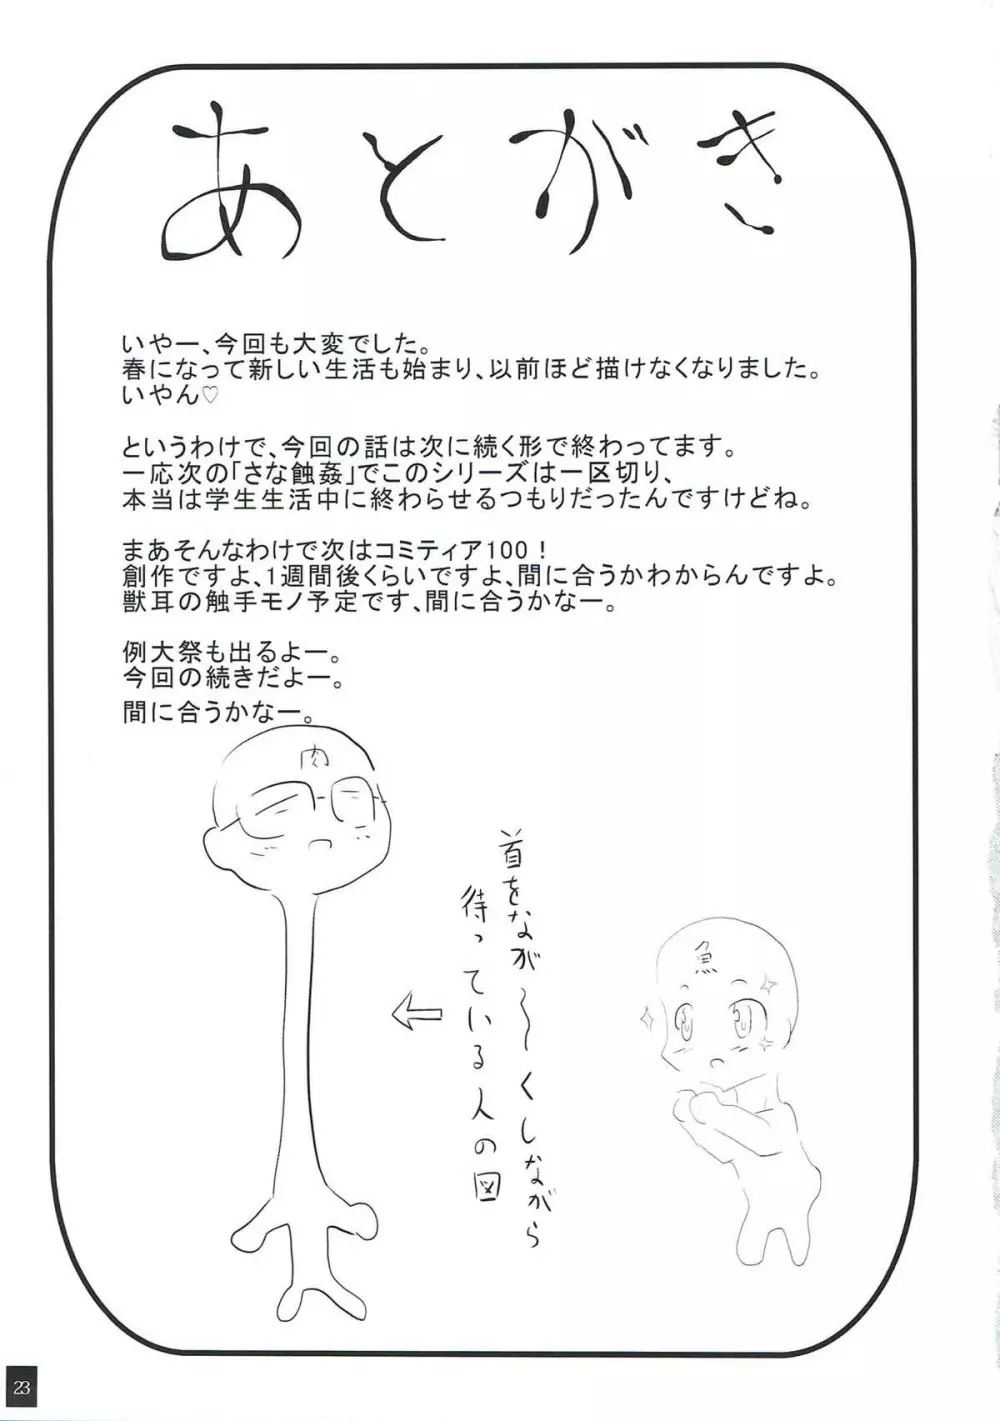 あとがき
いやー、今回も大変でした。
春になって新しい生活も始まり、以前ほど描けなくなりました。
いやん♡
というわけで、今回の話は次に続く形で終わってます。
一応次の「さな蝕姦」でこのシリーズは一区切り、
本当は学生生活中に終わらせるつもりだったんですけどね。
まあそんなわけで次はコミティア100！
創作ですよ、1週間後くらいですよ、間に合うかわからんですよ。
獣耳の触手モノ予定です、間に合うかなー。
例大祭も出るよー。
今回の続きだよー。
間に合うかなー。
肉
首をなが〜〜くしながら
待っている人の図
魚
23